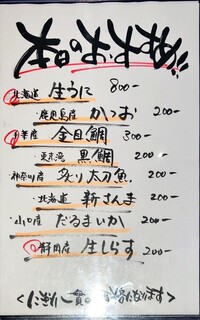 本日のおすすめ!!
北海道 生うに 800-
・鹿児島産 かつお 200-
千葉産 金目鯛 300-
・東京湾 黒鯛 200-
神奈川産 炙り太刀魚 200-
・北海道 新さんま 200-
・山口産 だるまいか 200-
静岡産 生しらす 200-
<にぎり一貫の
なります>